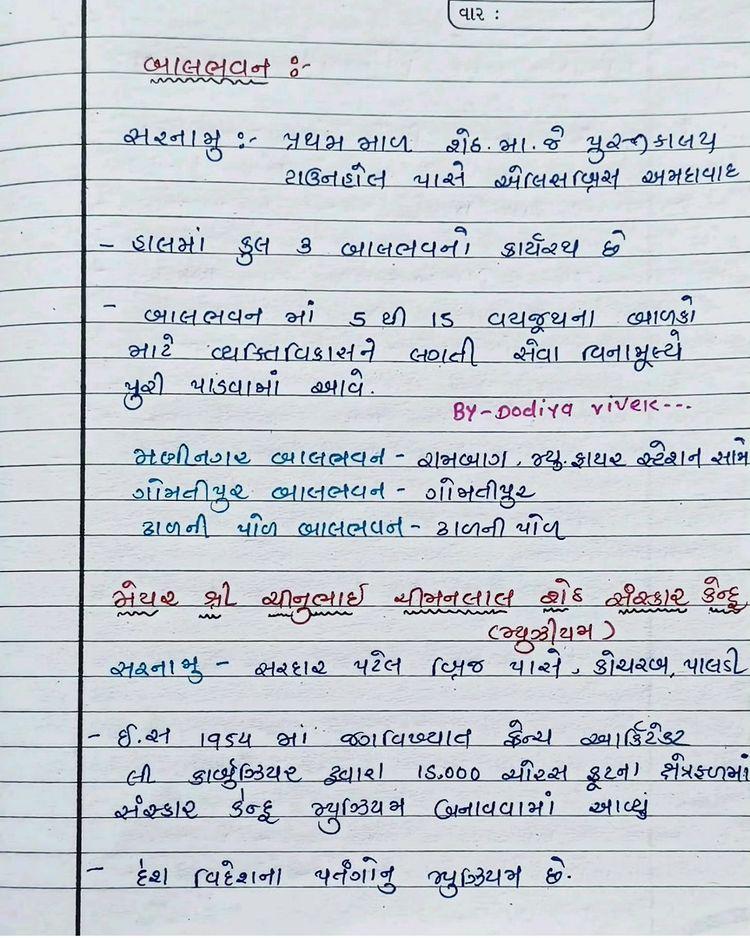 વાર :
બાલભવન :-
સરનામુ :- પ્રથમ માળ શેઠ. મા. જે પુસ્તકાલય
ટાઉનહોલ પાસે એલિસબ્રિસ અમદાવાદ
- હાલમાં કુલ 3 બાલભવનો કાર્યરથ છે
- બાલભવન માં 5 થી 15 વયજૂથના બાળકો
માટે વ્યક્તિવિકાસને લગતી સેવા વિનામૂલ્યે
પુરી પાડવામાં આવે.
BY-Dodiya vivek---
મણીનગર બાલભવન - રામબાગ, ન્યુ. ફાયર સ્ટેશન સામે
ગોમતીપુર બાલભવન - ગોમતીપુર
ઢાળની પોળ બાલભવન - ઢાળની પોળ
મેયર શ્રી ચીનુભાઈ ચીમનલાલ શેઠ સંસ્કાર કેન્દ્ર
(મ્યુઝીયમ)
સરનામુ - સરદાર પટેલ બ્રિજ પાસે, કોચરબ, પાલડી
- ઈ.સ ૧૯૫૪ માં જગવિખ્યાત ફ્રેન્ચ આર્કિટેક્ટ
લી કાર્બુઝિયર દ્વારા 15,000 ચોરસ ફૂટના ક્ષેત્રફળમાં
સંસ્કાર કેન્દ્ર મ્યુઝિયમ બનાવવામાં આવ્યું
- દેશ વિદેશના પતંગોનુ મ્યુઝિયમ છે.